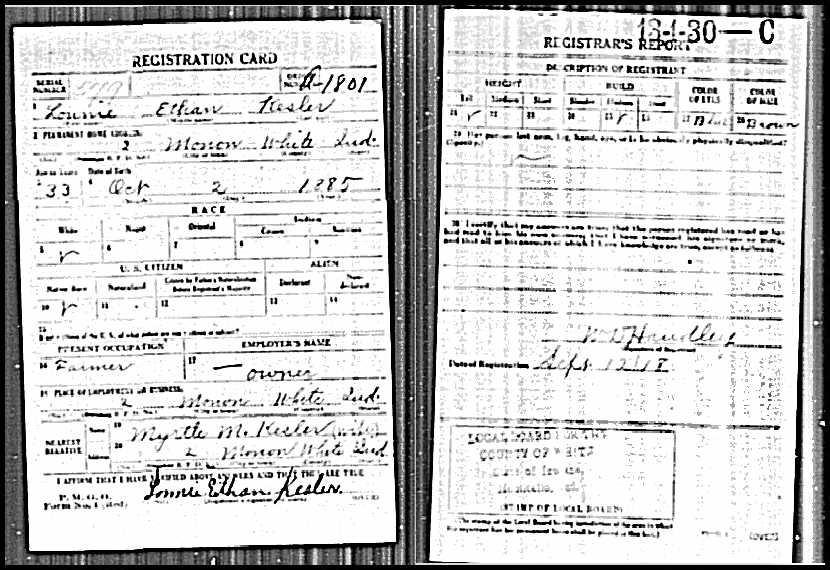 REGISTRATION CARD
SERIAL NUMBER
ORDER NUMBER A1801
1 Lonnie Ethan Kesler
2 PERMANENT HOME ADDRESS:
2 Monon White Ind.
Age in Years Date of Birth
33 Oct 2 1885
RACE
White Negro Oriental Indian
Citizen
5 ✓ 6 7 8 9
U. S. CITIZEN ALIEN
Native Born Naturalized Citizen by Father's Naturalization Before Registrant's Majority Declarant Non-declarant
10 ✓ 11 12 13 14
15
If not a citizen of the U. S., of what nation are you a citizen or subject?
PRESENT OCCUPATION EMPLOYER'S NAME
16 Farmer 17 — owner
18 PLACE OF EMPLOYMENT OR BUSINESS:
2 Monon White Ind.
NEAREST RELATIVE
Name 19 Myrtle M. Kesler (wife)
Address 20 2 Monon White Ind
I AFFIRM THAT I HAVE VERIFIED ABOVE ANSWERS AND THAT THEY ARE TRUE
P. M. G. O.
Form No. 1 (Red)
Lonnie Ethan Kesler.
13-1-30—C
REGISTRAR'S REPORT
DESCRIPTION OF REGISTRANT
HEIGHT BUILD COLOR OF EYES COLOR OF HAIR
Tall Medium Short Slender Medium Stout
21 ✓ 22 23 24 25 ✓ 26 27 28 Brown
29 Has person lost arm, leg, hand, eye, or is he obviously physically disqualified?
(Specify.)
30 I certify that my answers are true; that the person registered has read or has
had read to him his own answers; that I have witnessed his signature or mark,
and that all of his answers of which I have knowledge are true, except as follows:
W D Handley
Date of Registration Sept 12 18
LOCAL BOARD FOR THE
COUNTY OF WHITE
State of Indiana,
Monticello, Ind.
(STAMP OF LOCAL BOARD)
(The stamp of the Local Board having jurisdiction of the area in which
the registrant has his permanent home shall be placed in this box.)
(OVER)